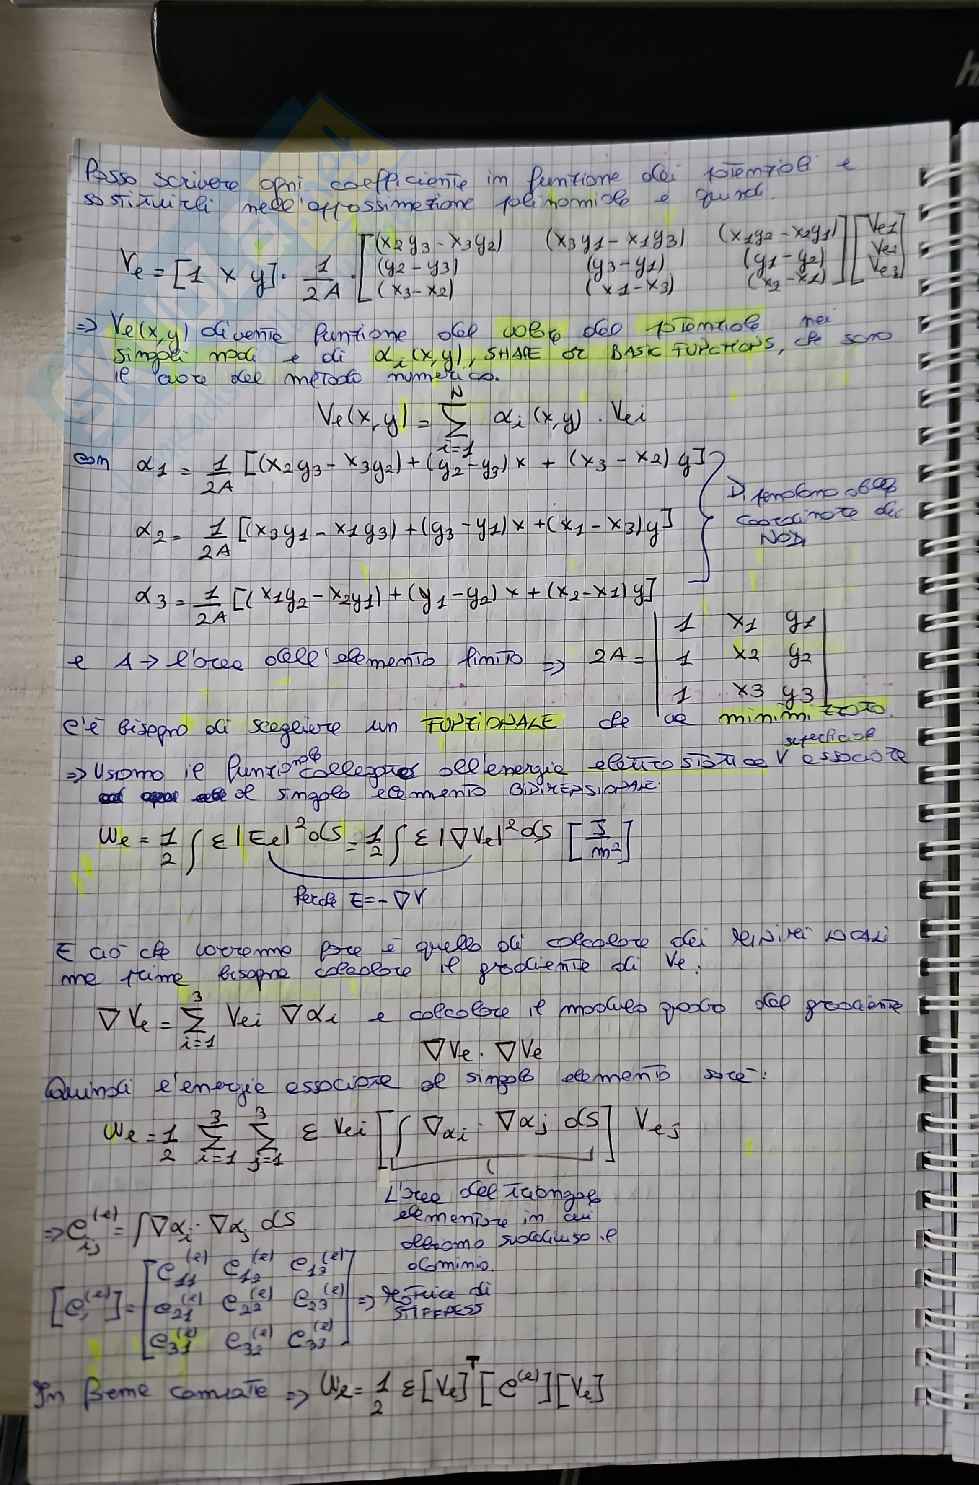 Posso scrivere ogni coefficiente in funzione dei potenziali e
sostituirli nell'approssimazione polinomiale e quindi
Ve = [1 x y] · 1/2A · [(x2y3 - x3y2) (x3y1 - x1y3) (x1y2 - x2y1)] [Ve1]
(y2 - y3) (y3 - y1) (y1 - y2) Ve2
(x3 - x2) (x1 - x3) (x2 - x1) Ve3
⇒ Ve(x,y) diventa funzione del valore del potenziale nei
singoli nodi e di αi(x,y), SHAPE or BASIC FUNCTIONS, che sono
il cuore del metodo numerico.
Ve(x,y) = Σ_{i=1}^{N} αi(x,y) · Vei
con α1 = 1/2A [(x2y3 - x3y2) + (y2 - y3)x + (x3 - x2)y]
Dipendono dalle
coordinate dei
NODI
α2 = 1/2A [(x3y1 - x1y3) + (y3 - y1)x + (x1 - x3)y]
α3 = 1/2A [(x1y2 - x2y1) + (y1 - y2)x + (x2 - x1)y]
e A → l'area dell'elemento finito ⇒ 2A = | 1 x1 y1 |
1 x2 y2
1 x3 y3
C'è bisogno di scegliere un FUNZIONALE che va minimizzato.
⇒ Usiamo il funzionale collegato all'energia elettrostatica superficiale associata
al singolo elemento BIDIMENSIONALE.
We = 1/2 ∫ ε |Ee|² dS = 1/2 ∫ ε |∇Ve|² dS [J/m²]
Perché E = -∇V
E ciò che vorremmo fare è quello di calcolare dei MINIMI LOCALI
ma prima bisogna calcolare il gradiente di Ve.
∇Ve = Σ_{i=1}^{3} Vei ∇αi e calcolare il modulo quadro del gradiente
∇Ve · ∇Ve
Quindi l'energia associata al singolo elemento sarà:
We = 1/2 Σ_{i=1}^{3} Σ_{j=1}^{3} ε Vei [∫ ∇αi · ∇αj dS] Vej
L'area del triangolo
elementare in cui
abbiamo suddiviso il
dominio.
⇒ Cij^(e) = ∫ ∇αi · ∇αj dS
[C^(e)] = [C11^(e) C12^(e) C13^(e)
C21^(e) C22^(e) C23^(e)
C31^(e) C32^(e) C33^(e)] ⇒ Matrice di
STIFFNESS
In forma compatta ⇒ We = 1/2 ε [Ve]^T [C^(e)] [Ve]